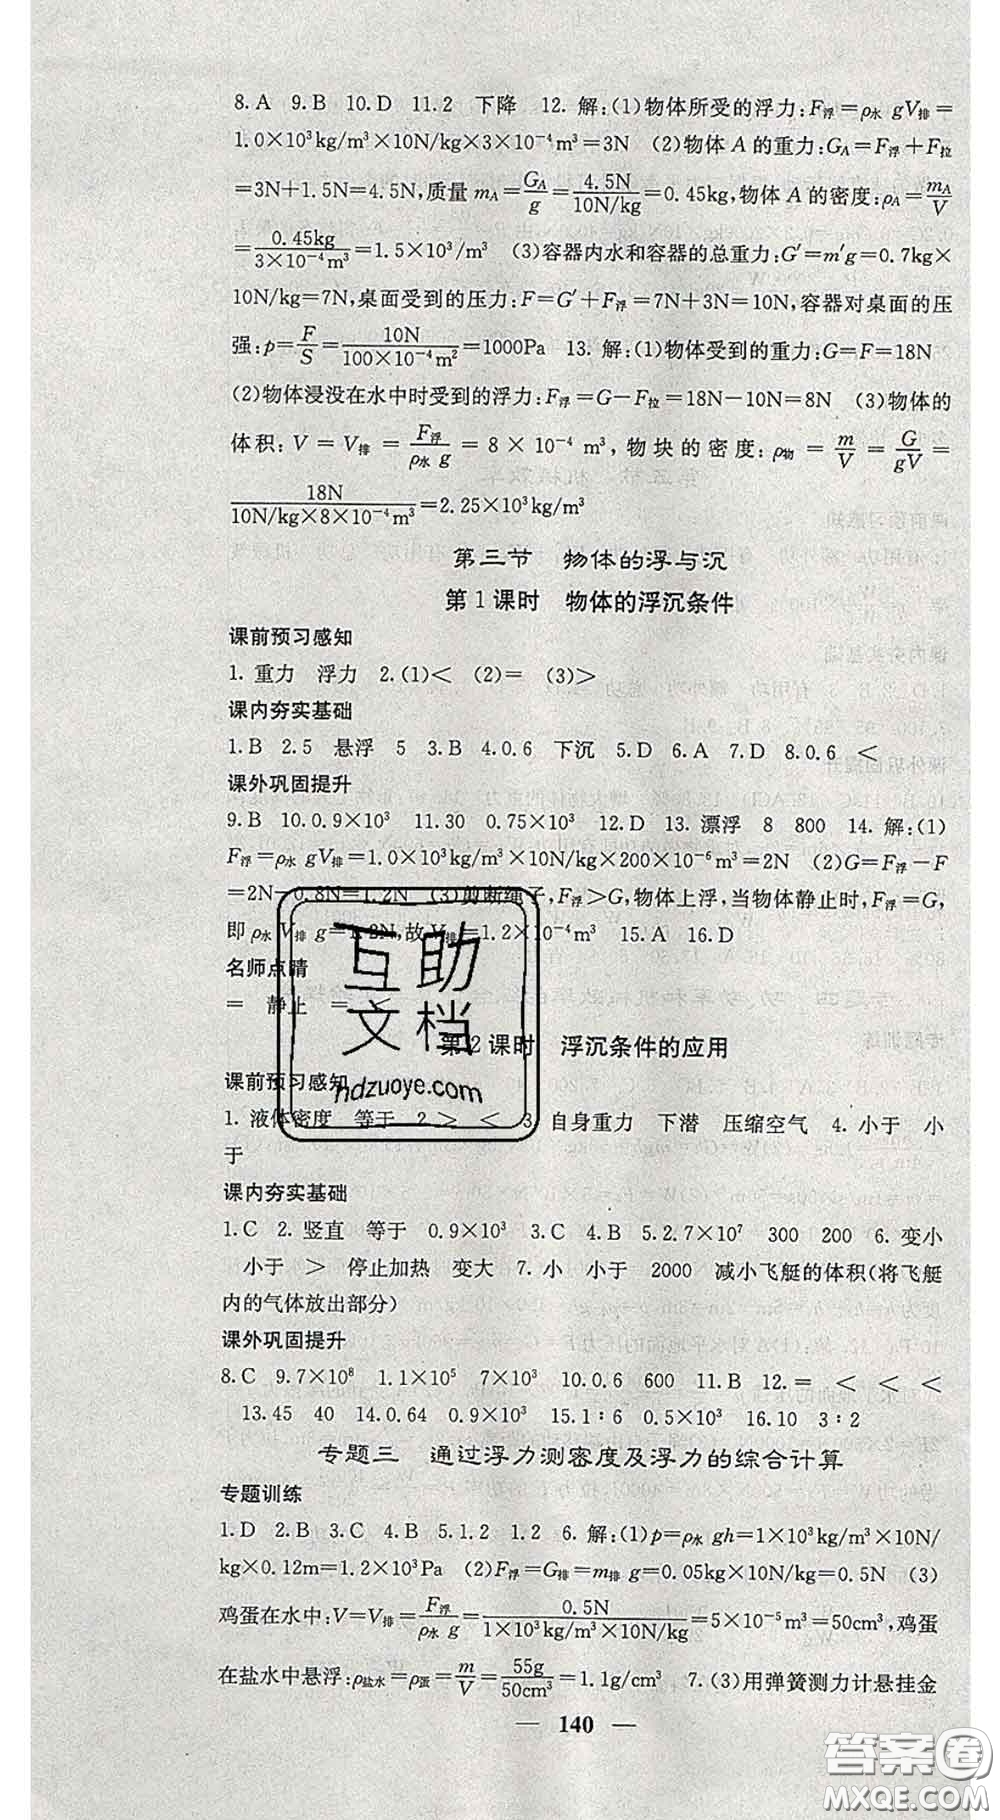 8.A 9.B 10.D 11.2 下降 12.解:(1)物体所受的浮力:F浮=ρ水 gV排=
1.0×10³kg/m³×10N/kg×3×10⁻⁴m³=3N (2)物体A的重力:G_A=F浮+F拉
=3N+1.5N=4.5N,质量m_A=G_A/g=4.5N/10N/kg=0.45kg,物体A的密度:ρ_A=m_A/V
=0.45kg/3×10⁻⁴m³=1.5×10³/m³ (3)容器内水和容器的总重力:G′=m′g=0.7kg×
10N/kg=7N,桌面受到的压力:F=G′+F浮=7N+3N=10N,容器对桌面的压
强:p=F/S=10N/100×10⁻⁴m²=1000Pa 13.解:(1)物体受到的重力:G=F=18N
(2)物体浸没在水中时受到的浮力:F浮=G-F拉=18N-10N=8N (3)物体的
体积:V=V排=F浮/ρ水 g=8×10⁻⁴ m³,物块的密度:ρ物=m/V=G/gV=
18N/10N/kg×8×10⁻⁴m³=2.25×10³kg/m³
第三节 物体的浮与沉
第1课时 物体的浮沉条件
课前预习感知
1.重力 浮力 2.(1)< (2)= (3)>
课内夯实基础
1.B 2.5 悬浮 5 3.B 4.0.6 下沉 5.D 6.A 7.D 8.0.6 <
课外巩固提升
9.B 10.0.9×10³ 11.30 0.75×10³ 12.D 13.漂浮 8 800 14.解:(1)
F浮=ρ水 gV排=1.0×10³kg/m³×10N/kg×200×10⁻⁶m³=2N (2)G=F浮-F
=2N-0.8N=1.2N (3)剪断绳子,F浮>G,物体上浮,当物体静止时,F浮=G,
即ρ水 V排 g=1.2N,故V排=1.2×10⁻⁴m³ 15.A 16.D
名师点睛
= 静止 = <
第2课时 浮沉条件的应用
课前预习感知
1.液体密度 等于 2.> < 3.自身重力 下潜 压缩空气 4.小于 小
于
课内夯实基础
1.C 2.竖直 等于 0.9×10³ 3.C 4.B 5.2.7×10⁷ 300 200 6.变小
小于 > 停止加热 变大 7.小 小于 2000 减小飞艇的体积(将飞艇
内的气体放出部分)
课外巩固提升
8.C 9.7×10⁸ 1.1×10⁵ 7×10³ 10.0.6 600 11.B 12.= < < <
13.45 40 14.0.64 0.9×10³ 15.1:6 0.5×10³ 16.10 3:2
专题三 通过浮力测密度及浮力的综合计算
专题训练
1.D 2.B 3.C 4.B 5.1.2 1.2 6.解:(1)p=ρ水 gh=1×10³kg/m³×10N/
kg×0.12m=1.2×10³Pa (2)F浮=G排=m排 g=0.05kg×10N/kg=0.5N (3)
鸡蛋在水中:V=V排=F浮/ρ水 g=0.5N/1×10³kg/m³×10N/kg=5×10⁻⁵m³=50cm³,鸡蛋
在盐水中悬浮:ρ盐水=ρ蛋=m/V=55g/50cm³=1.1g/cm³ 7.(3)用弹簧测力计悬挂金
— 140 —
互助
文档
hdzuoye.com
答案圈
MXQE.COM